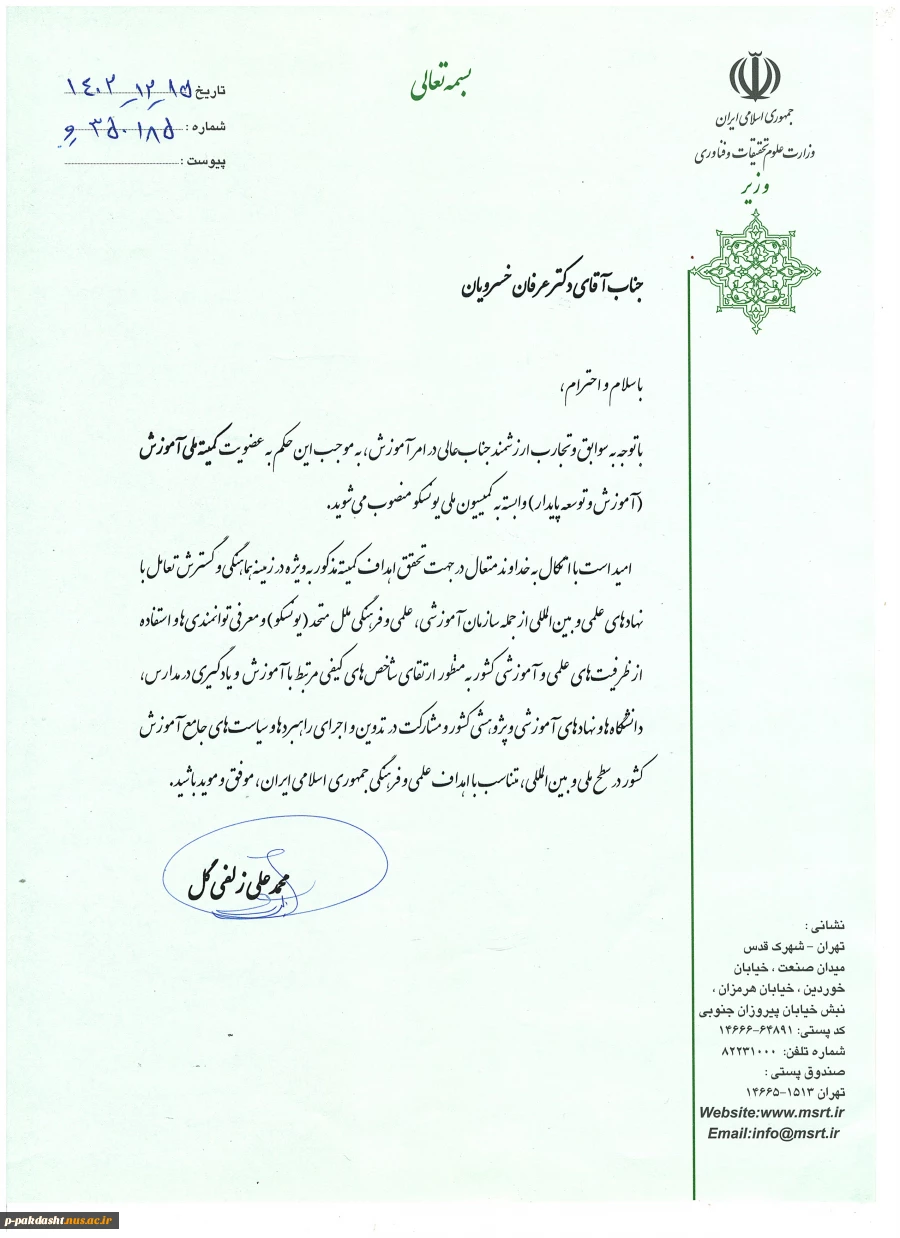 بسمه تعالی
جمهوری اسلامی ایران
وزارت علوم تحقیقات و فناوری
وزیر
تاریخ ۱٤۰۲-۱۲-۱۵
شماره : ۳۵۰۱۸۵ و
پیوست :
جناب آقای دکتر عرفان خسرویان
با سلام و احترام،
با توجه به سوابق و تجارب ارزشمند جناب‌عالی در امر آموزش، به موجب این حکم به عضویت کمیته ملی آموزش
(آموزش و توسعه پایدار) وابسته به کمیسیون ملی یونسکو منصوب می‌شوید.
امید است با اتکال به خداوند متعال در جهت تحقق اهداف کمیته مذکور به ویژه در زمینه هماهنگی و گسترش تعامل با
نهادهای علمی و بین‌المللی از جمله سازمان آموزشی، علمی و فرهنگی ملل متحد (یونسکو) و معرفی توانمندی‌ها و استفاده
از ظرفیت‌های علمی و آموزشی کشور به منظور ارتقای شاخص‌های کیفی مرتبط با آموزش و یادگیری در مدارس،
دانشگاه‌ها و نهادهای آموزشی و پژوهشی کشور و مشارکت در تدوین و اجرای راهبردها و سیاست‌های جامع آموزش
کشور در سطح ملی و بین‌المللی، متناسب با اهداف علمی و فرهنگی جمهوری اسلامی ایران، موفق و موید باشید.
محمدعلی زلفی گل
نشانی :
تهران - شهرک قدس
میدان صنعت ، خیابان
خوردین ، خیابان هرمزان ،
نبش خیابان پیروزان جنوبی
کد پستی: ۶۴۸۹۱-۱۴۶۶۶
شماره تلفن: ۸۲۲۳۱۰۰۰
صندوق پستی :
تهران ۱۵۱۳-۱۴۶۶۵
Website:www.msrt.ir
Email:info@msrt.ir
p-pakdasht.nus.ac.ir